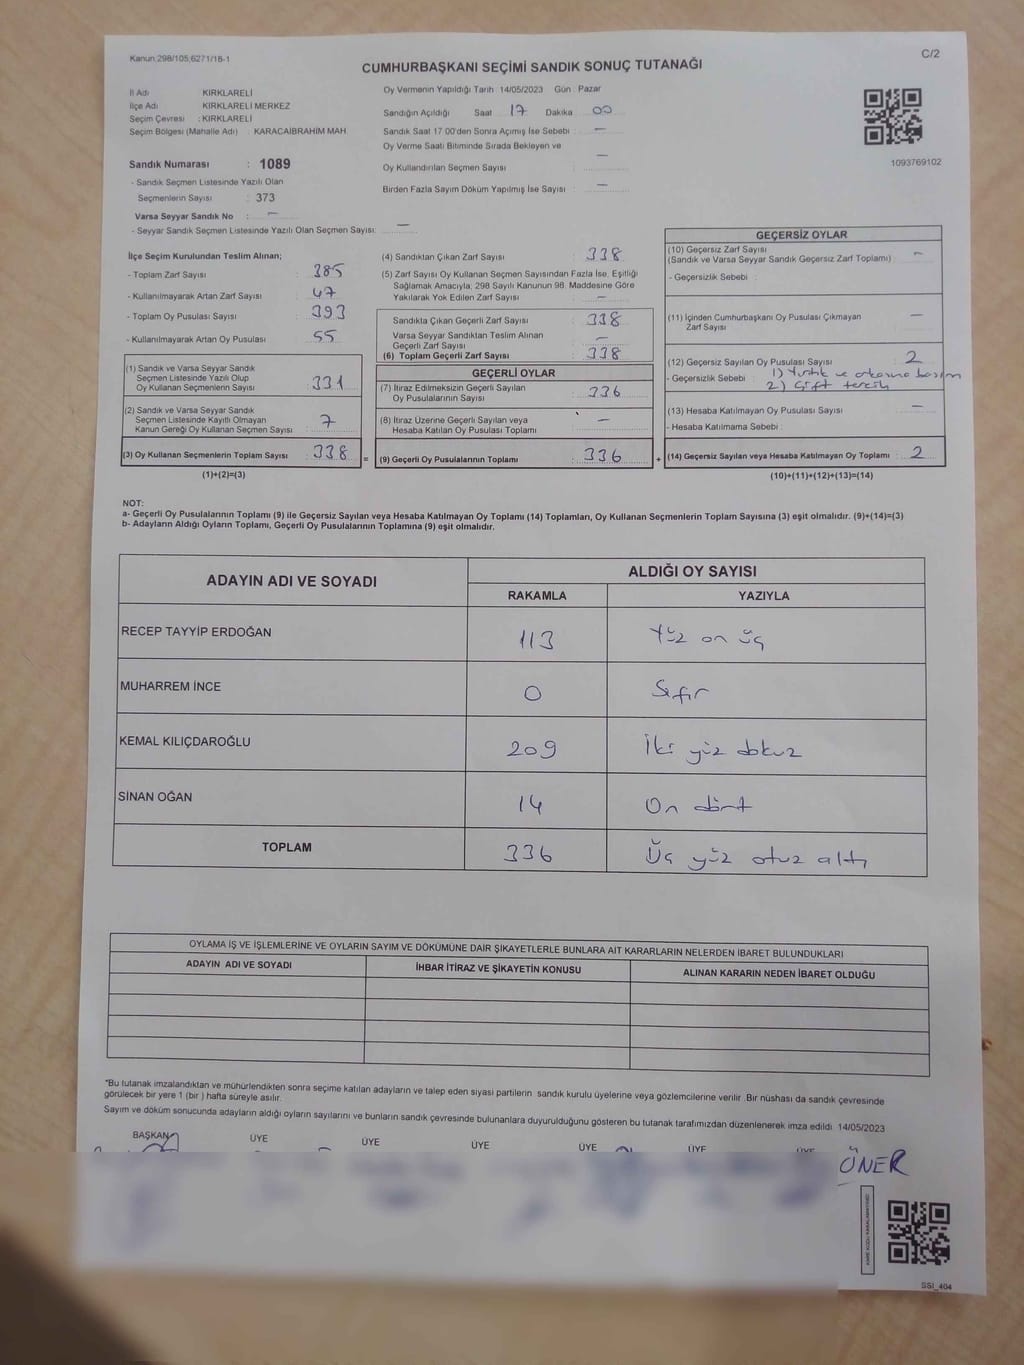 Kanun,298/105,6271/18-1
C/2
CUMHURBAŞKANI SEÇİMİ SANDIK SONUÇ TUTANAĞI
İl Adı KIRKLARELİ
İlçe Adı KIRKLARELİ MERKEZ
Seçim Çevresi : KIRKLARELİ
Seçim Bölgesi (Mahalle Adı) : KARACAİBRAHİM MAH.
Sandık Numarası : 1089
- Sandık Seçmen Listesinde Yazılı Olan
Seçmenlerin Sayısı : 373
Varsa Seyyar Sandık No : —
- Seyyar Sandık Seçmen Listesinde Yazılı Olan Seçmen Sayısı: —
Oy Vermenin Yapıldığı Tarih 14/05/2023 Gün : Pazar
Sandığın Açıldığı Saat 17 Dakika 00
Sandık Saat 17.00'den Sonra Açımış İse Sebebi : —
Oy Verme Saati Bitiminde Sırada Bekleyen ve
Oy Kullandırılan Seçmen Sayısı : —
Birden Fazla Sayım Döküm Yapılmış İse Sayısı : —
1093769102
İlçe Seçim Kurulundan Teslim Alınan;
- Toplam Zarf Sayısı : 385
- Kullanılmayarak Artan Zarf Sayısı : 47
- Toplam Oy Pusulası Sayısı : 393
- Kullanılmayarak Artan Oy Pusulası : 55
(1) Sandık ve Varsa Seyyar Sandık
Seçmen Listesinde Yazılı Olup
Oy Kullanan Seçmenlerin Sayısı : 331
(2) Sandık ve Varsa Seyyar Sandık
Seçmen Listesinde Kayıtlı Olmayan
Kanun Gereği Oy Kullanan Seçmen Sayısı : 7
(3) Oy Kullanan Seçmenlerin Toplam Sayısı : 338 =
(1)+(2)=(3)
(4) Sandıktan Çıkan Zarf Sayısı : 338
(5) Zarf Sayısı Oy Kullanan Seçmen Sayısından Fazla İse, Eşitliği
Sağlamak Amacıyla; 298 Sayılı Kanunun 98. Maddesine Göre
Yakılarak Yok Edilen Zarf Sayısı : —
Sandıkta Çıkan Geçerli Zarf Sayısı : 338
Varsa Seyyar Sandıktan Teslim Alınan
Geçerli Zarf Sayısı : —
(6) Toplam Geçerli Zarf Sayısı : 338
GEÇERLİ OYLAR
(7) İtiraz Edilmeksizin Geçerli Sayılan
Oy Pusulalarının Sayısı : 336
(8) İtiraz Üzerine Geçerli Sayılan veya
Hesaba Katılan Oy Pusulası Toplamı : —
(9) Geçerli Oy Pusulalarının Toplamı : 336 +
GEÇERSİZ OYLAR
(10) Geçersiz Zarf Sayısı
(Sandık ve Varsa Seyyar Sandık Geçersiz Zarf Toplamı) : —
- Geçersizlik Sebebi :
(11) İçinden Cumhurbaşkanı Oy Pusulası Çıkmayan
Zarf Sayısı : —
(12) Geçersiz Sayılan Oy Pusulası Sayısı : 2
- Geçersizlik Sebebi : 1) Yırtık ve arkasına basım
2) Çift tercih
(13) Hesaba Katılmayan Oy Pusulası Sayısı : —
- Hesaba Katılmama Sebebi :
(14) Geçersiz Sayılan veya Hesaba Katılmayan Oy Toplamı : 2
(10)+(11)+(12)+(13)=(14)
NOT:
a- Geçerli Oy Pusulalarının Toplamı (9) ile Geçersiz Sayılan veya Hesaba Katılmayan Oy Toplamı (14) Toplamları, Oy Kullanan Seçmenlerin Toplam Sayısına (3) eşit olmalıdır. (9)+(14)=(3)
b- Adayların Aldığı Oyların Toplamı, Geçerli Oy Pusulalarının Toplamına (9) eşit olmalıdır.
ADAYIN ADI VE SOYADI ALDIĞI OY SAYISI
RAKAMLA YAZIYLA
RECEP TAYYİP ERDOĞAN 113 Yüz on üç
MUHARREM İNCE 0 Sıfır
KEMAL KILIÇDAROĞLU 209 İki yüz dokuz
SİNAN OĞAN 14 On dört
TOPLAM 336 Üç yüz otuz altı
OYLAMA İŞ VE İŞLEMLERİNE VE OYLARIN SAYIM VE DÖKÜMÜNE DAİR ŞİKAYETLERLE BUNLARA AİT KARARLARIN NELERDEN İBARET BULUNDUKLARI
ADAYIN ADI VE SOYADI İHBAR İTİRAZ VE ŞİKAYETİN KONUSU ALINAN KARARIN NEDEN İBARET OLDUĞU
*Bu tutanak imzalandıktan ve mühürlendikten sonra seçime katılan adayların ve talep eden siyasi partilerin sandık kurulu üyelerine veya gözlemcilerine verilir .Bir nüshası da sandık çevresinde
görülecek bir yere 1 (bir ) hafta süreyle asılır.
Sayım ve döküm sonucunda adayların aldığı oyların sayılarını ve bunların sandık çevresinde bulunanlara duyurulduğunu gösteren bu tutanak tarafımızdan düzenlenerek imza edildi. 14/05/2023
BAŞKAN ÜYE ÜYE ÜYE ÜYE ÜYE ÜYE
ÖNER
SSI_404